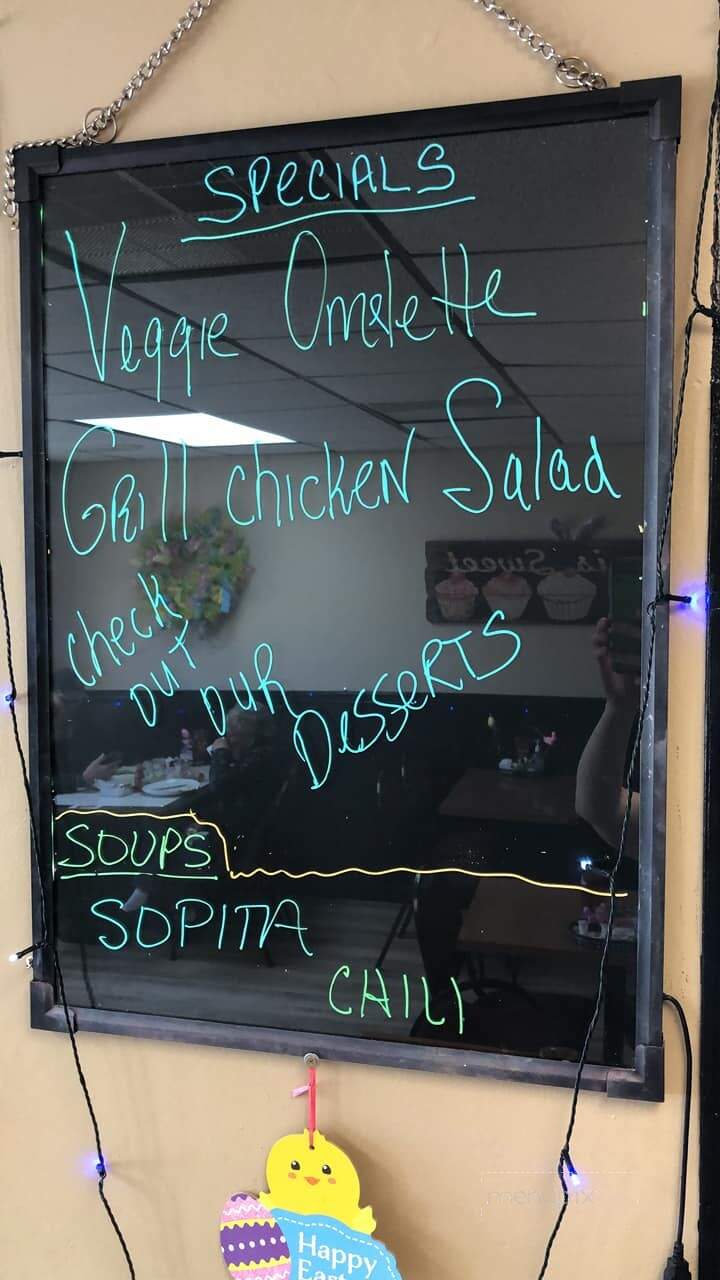 SPECIALS
Veggie Omelette
GRill chicken Salad
check
out our
DesseRTS
SOUPS
SOPITA
CHILI
is Sweet
Happy
East
menupix